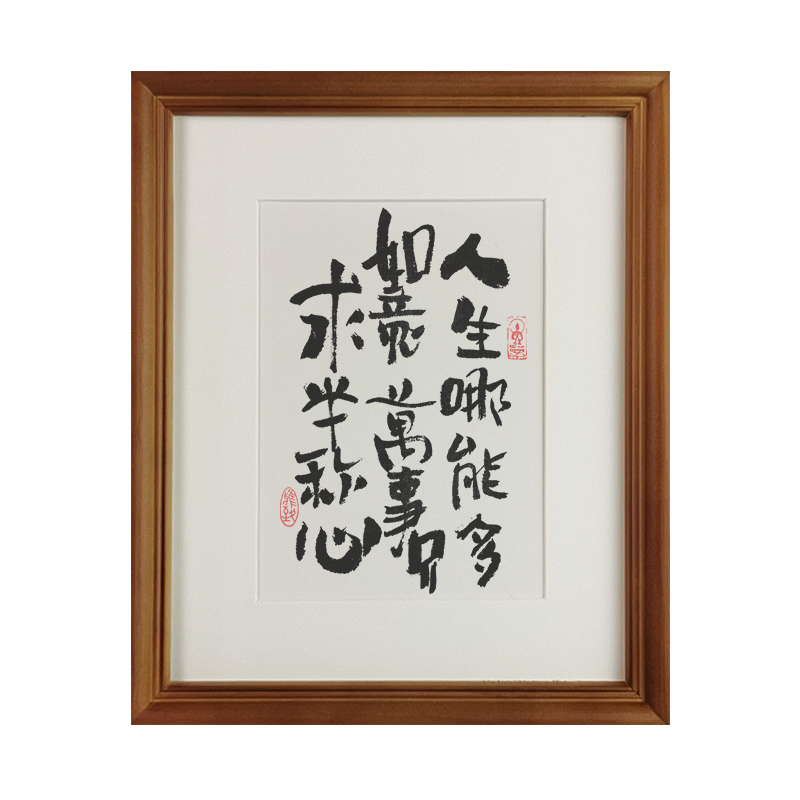 人生哪能多
如意萬事只
求半称心